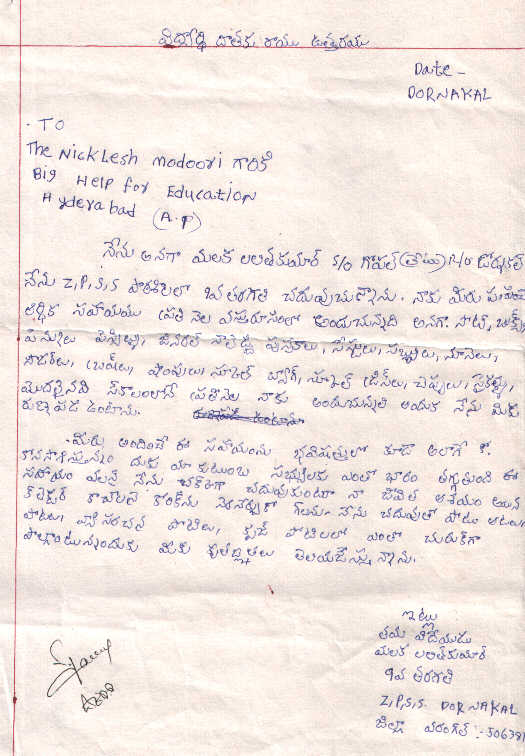 విద్యార్థి దాతకు రాయు ఉత్తరము
Date -
DORNAKAL
. TO
The Nicklesh modoori గారికి
Big Help for Education
Hyderabad (A.P)
నేను అనగా మలక లలిత్‌కుమార్ S/o గోపల్ R/o డోర్నకల్
నేను Z,P,S,S పాఠశాలలో 9వ తరగతి చదువుచున్నాను. నాకు మీరు
ఆర్థిక సహాయము ప్రతి నెల వస్తురూపంలో అందుచున్నది అనగా నోట్ బుక్స్
పెన్నులు పెన్సిళ్ళు, జనరల్ నాలెడ్జి పుస్తకాలు, పేస్టులు, సబ్బులు, నూనెలు,
పౌడర్‌లు, బ్రష్‌లు, షాంపులు స్కూల్ బ్యాగ్, స్కూల్ డ్రెస్‌లు, చెప్పులు,
మొదలైనవి సకాలంలోనే ప్రతినెల నాకు అందుచున్నవి అందుకు నేను మీకు
రుణపడి ఉంటాను.
మీరు అందించే ఈ సహాయంను భవిష్యత్తులో కూడా అలాగే
కొనసాగిస్తున్నందుకు మా కుటుంబ సభ్యులకు ఎంతో భారం తగ్గుతుంది ఈ
సహాయం వలనే నేను చక్కగా చదువుకుంటూ నా జీవిత ఆశయం అయిన
కలెక్టర్ కావాలనే కోరికను నెరవేర్చుకో గలను. నేను చదువుతో పాటు ఆటలు
పాటలు, వ్యాసరచన పోటీలు, క్విజ్ పోటీలలో ఎంతో చురుకుగా
పాల్గొంటున్నందుకు మీకు కృతజ్ఞతలు తెలియజేస్తున్నాను.
ఇట్లు
తమ విదేయుడు
మలక లలిత్‌కుమార్
9వ తరగతి
Z,P,S,S. DORNAKAL
జిల్లా వరంగల్ :- 506381